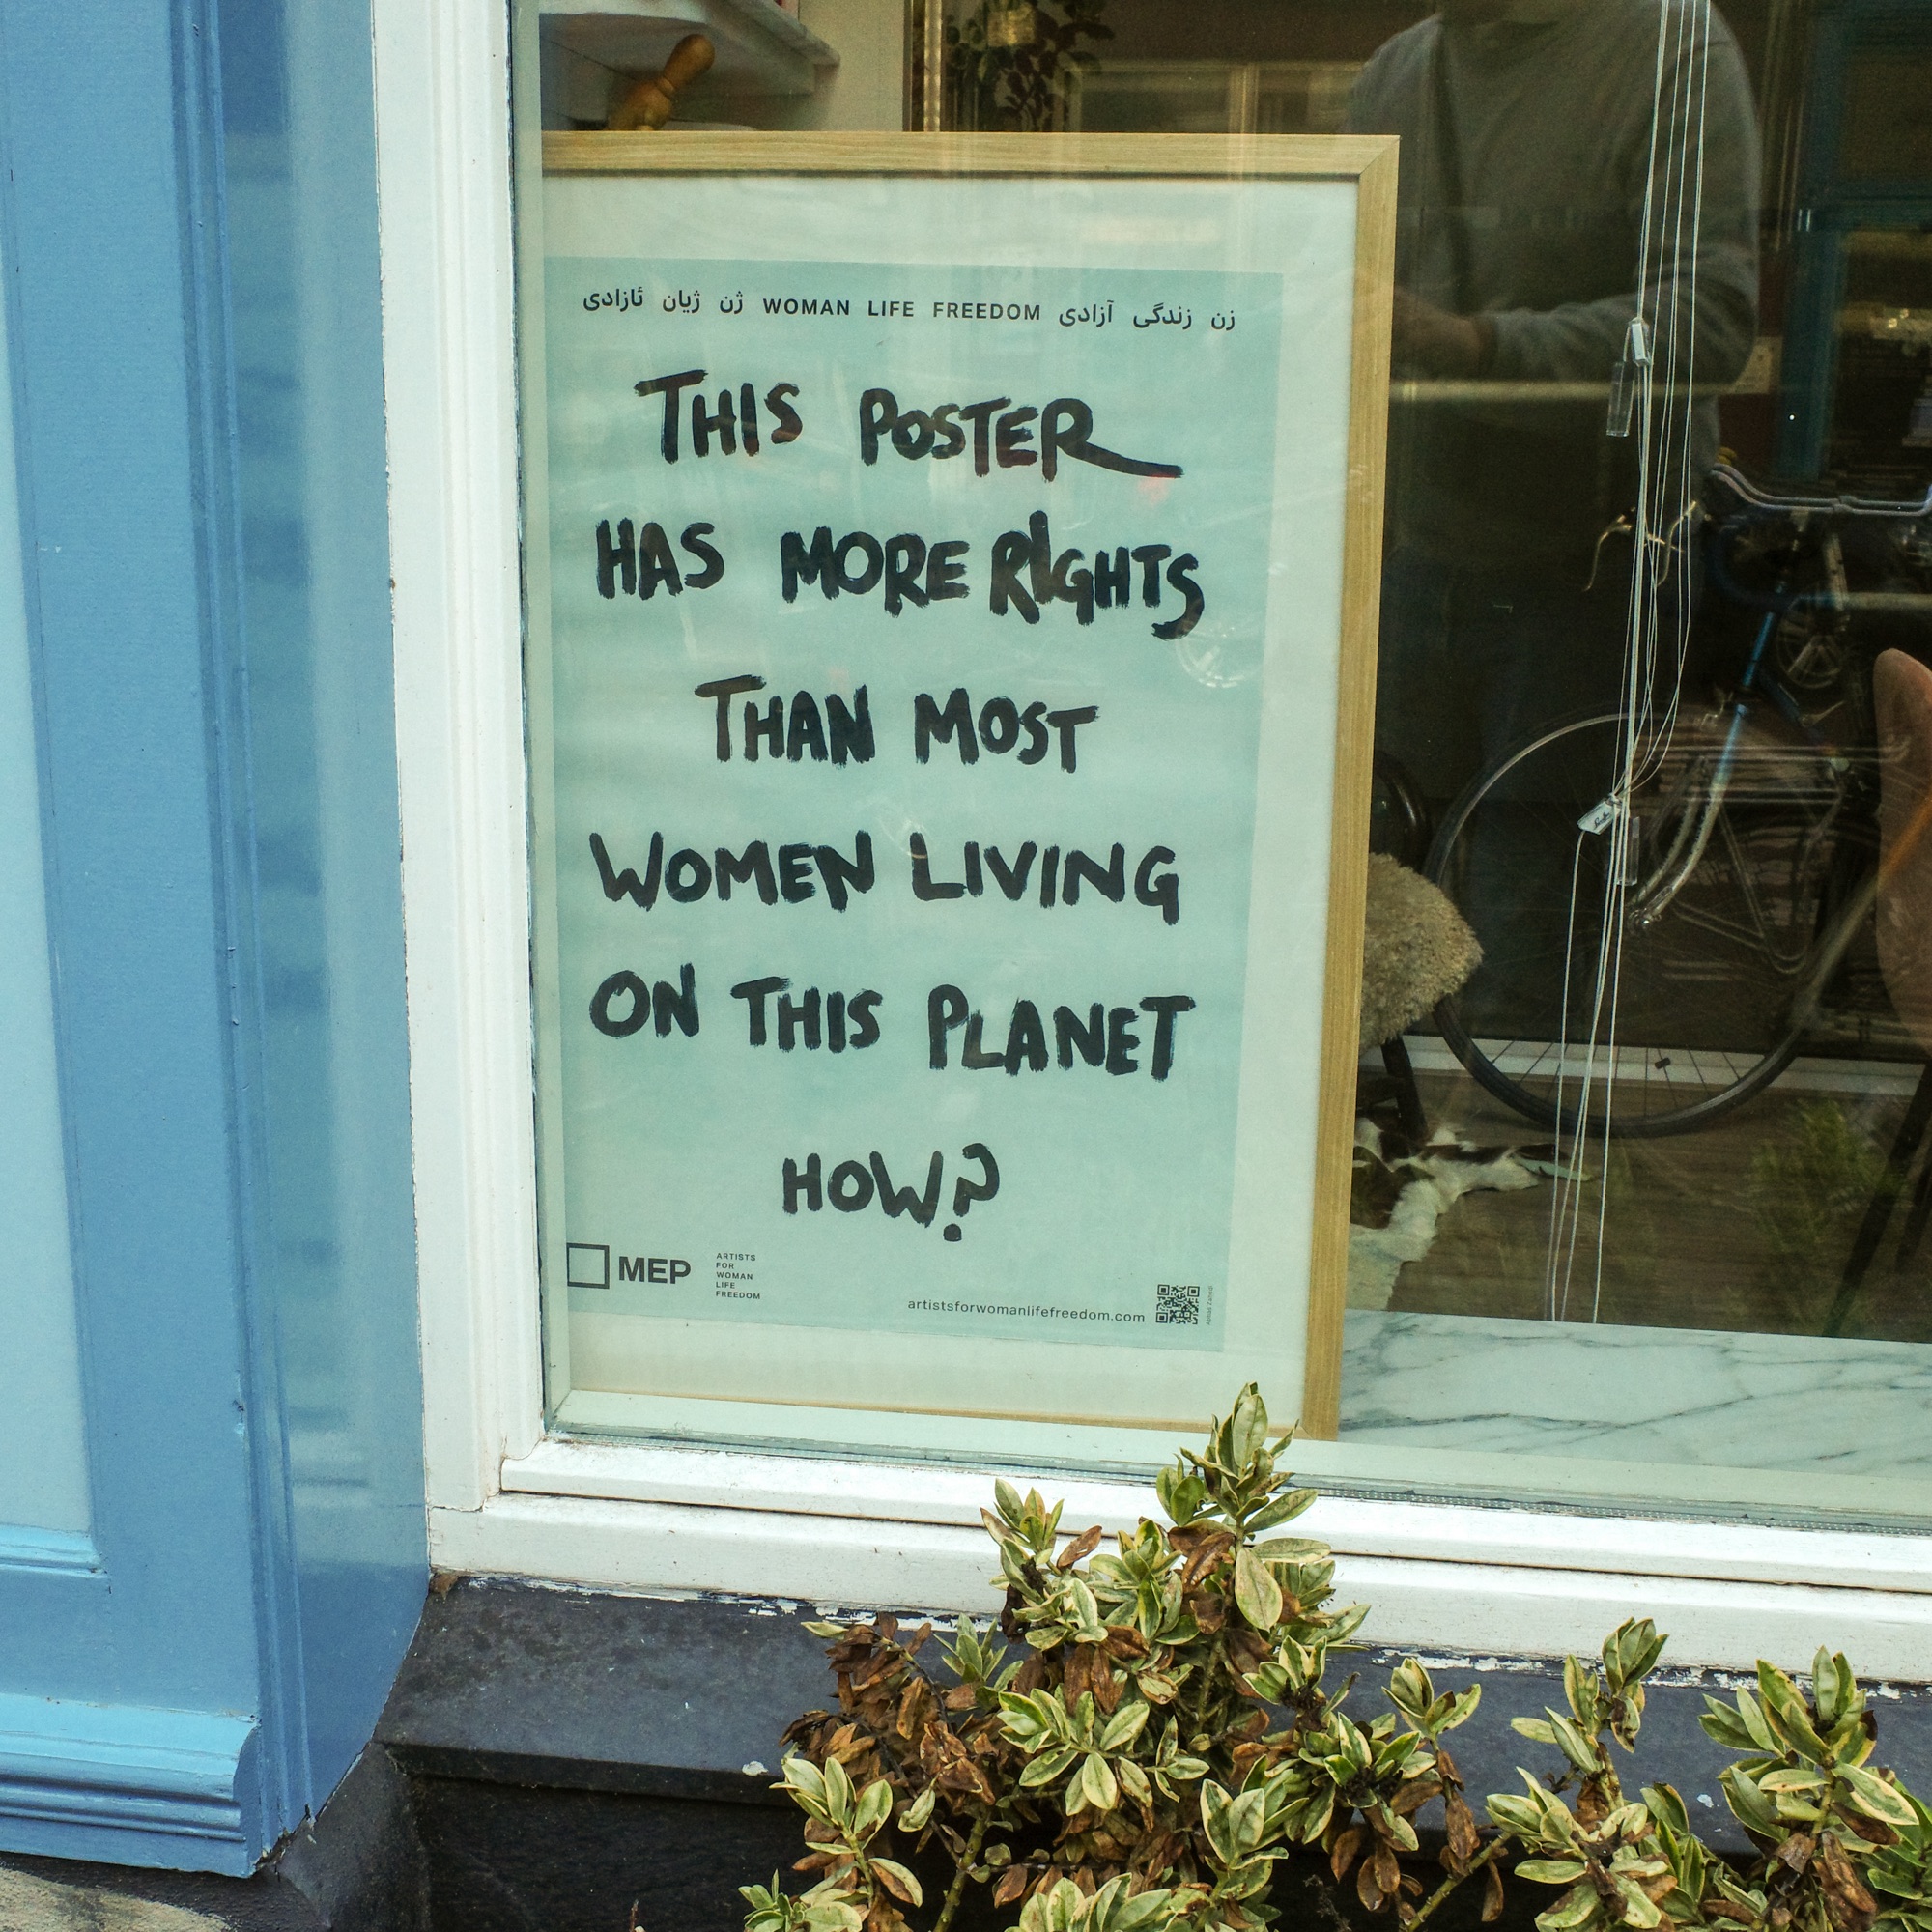 ژن ژیان ئازادی WOMAN LIFE FREEDOM زن زندگی آزادی
THIS POSTER
HAS MORE RIGHTS
THAN MOST
WOMEN LIVING
ON THIS PLANET
HOW?
MEP
ARTISTS
FOR
WOMAN
LIFE
FREEDOM
artistsforwomanlifefreedom.com